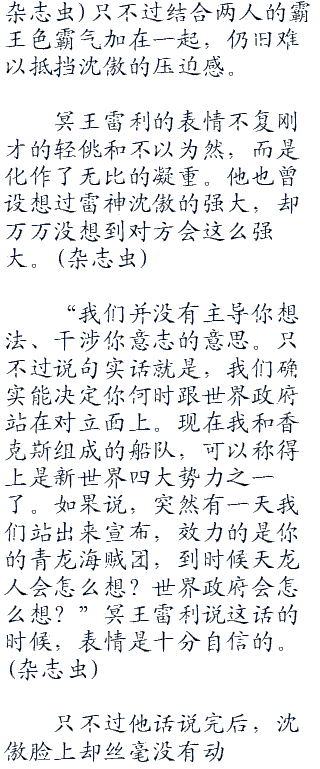 杂志虫)只不过结合两人的霸
王色霸气加在一起，仍旧难
以抵挡沈傲的压迫感。
冥王雷利的表情不复刚
才的轻佻和不以为然，而是
化作了无比的凝重。他也曾
设想过雷神沈傲的强大，却
万万没想到对方会这么强
大。(杂志虫)
“我们并没有主导你想
法、干涉你意志的意思。只
不过说句实话就是，我们确
实能决定你何时跟世界政府
站在对立面上。现在我和香
克斯组成的船队，可以称得
上是新世界四大势力之一
了。如果说，突然有一天我
们站出来宣布，效力的是你
的青龙海贼团，到时候天龙
人会怎么想？世界政府会怎
么想？”冥王雷利说这话的
时候，表情是十分自信的。
(杂志虫)
只不过他话说完后，沈
傲脸上却丝毫没有动